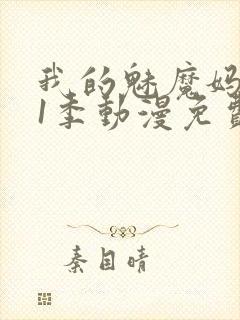 我的魅魔妈
1季動漫免費
秦目晴